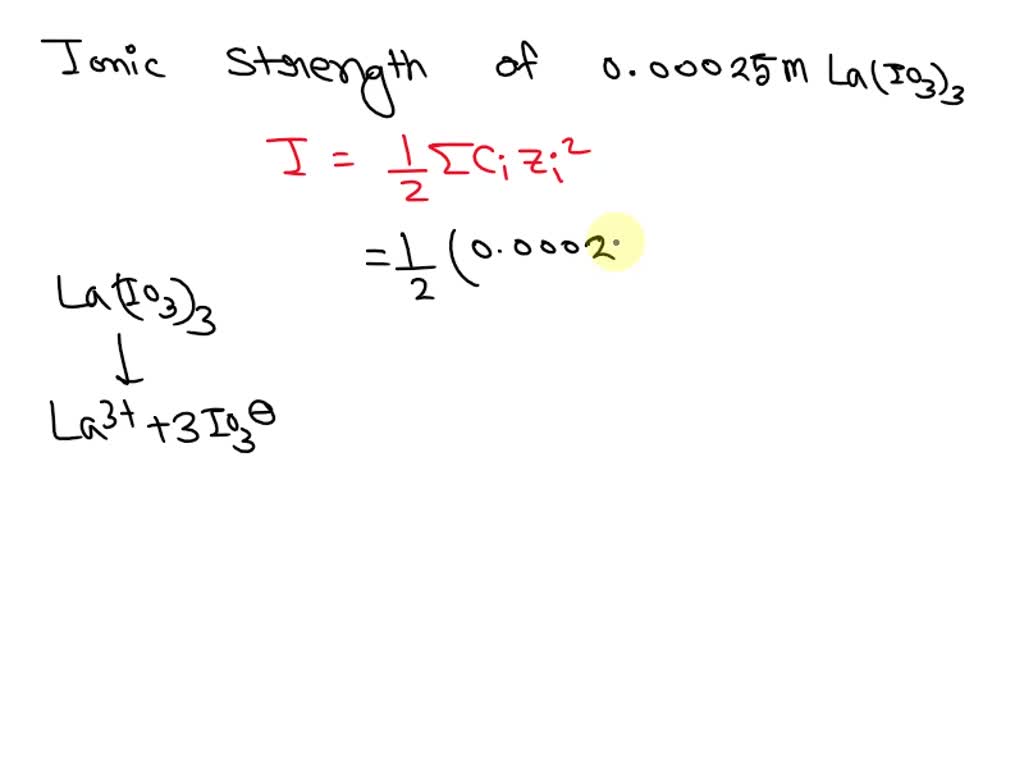 Ionic Strength of 0.00025m La(IO₃)₃
I = 1/2 ΣCᵢ zᵢ²
= 1/2 (0.0002
La(IO₃)₃
↓
La³⁺ + 3IO₃⊖